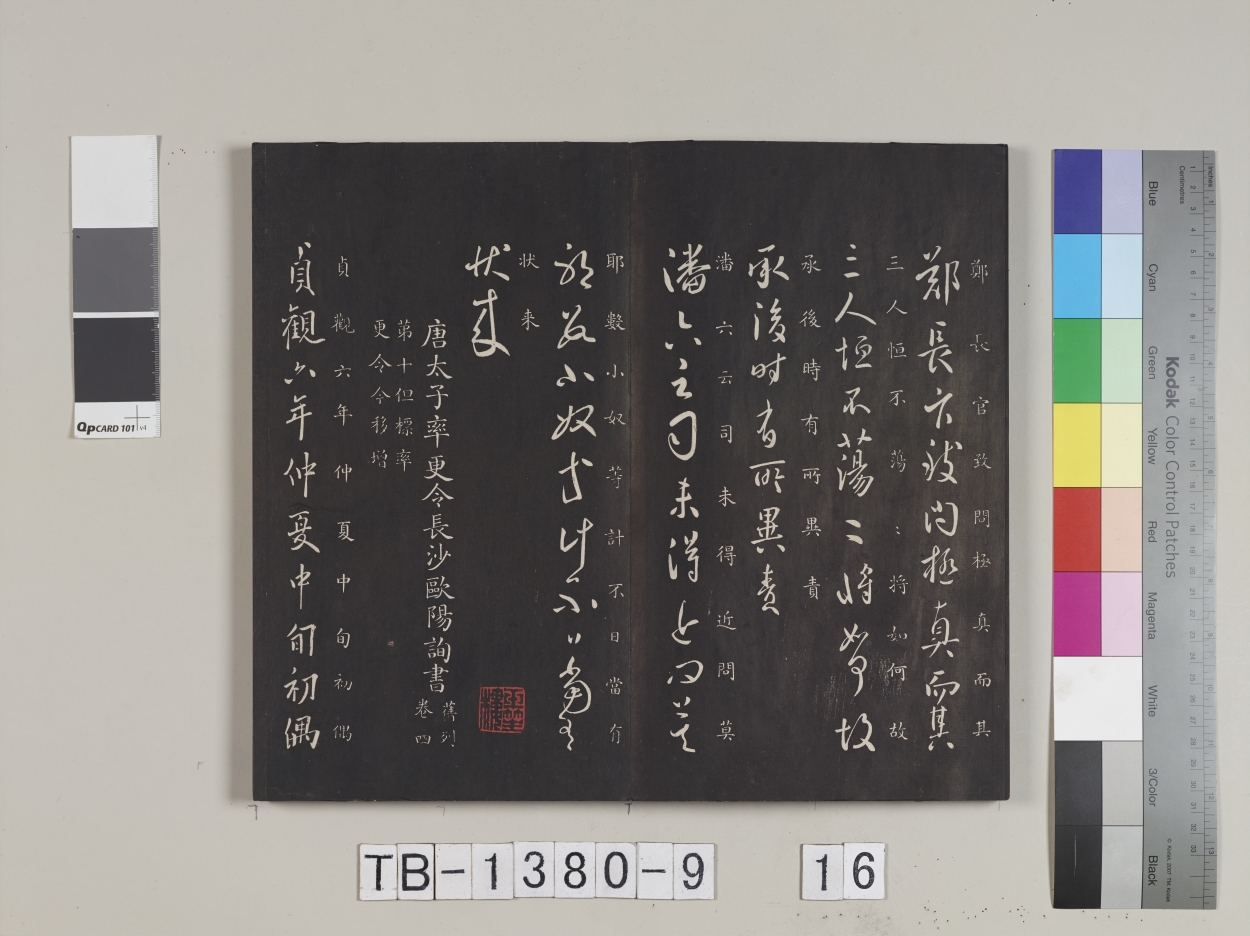 鄭長官致問極真而其
鄭長官致問極真而其
三人恒不蕩〻将如何故
三人恒不蕩〻将如何故
承後時有所異責
承後時有所異責
潘六云司未得近問莫
潘六云司未得近問莫
耶數小奴等計不日當有
耶數小奴等計不日當有
状来
状来
唐太子率更令長沙歐陽詢書
舊列
卷四
第十但標率
更令今移增
貞觀六年仲夏中旬初偶
貞觀六年仲夏中旬初偶
QPCARD 101 v4
Kodak Color Control Patches
Blue
Cyan
Green
Yellow
Red
Magenta
White
3/Color
Black
Inches
Centimetres
© Kodak, 2007 TM: Kodak
TB-1380-9
16